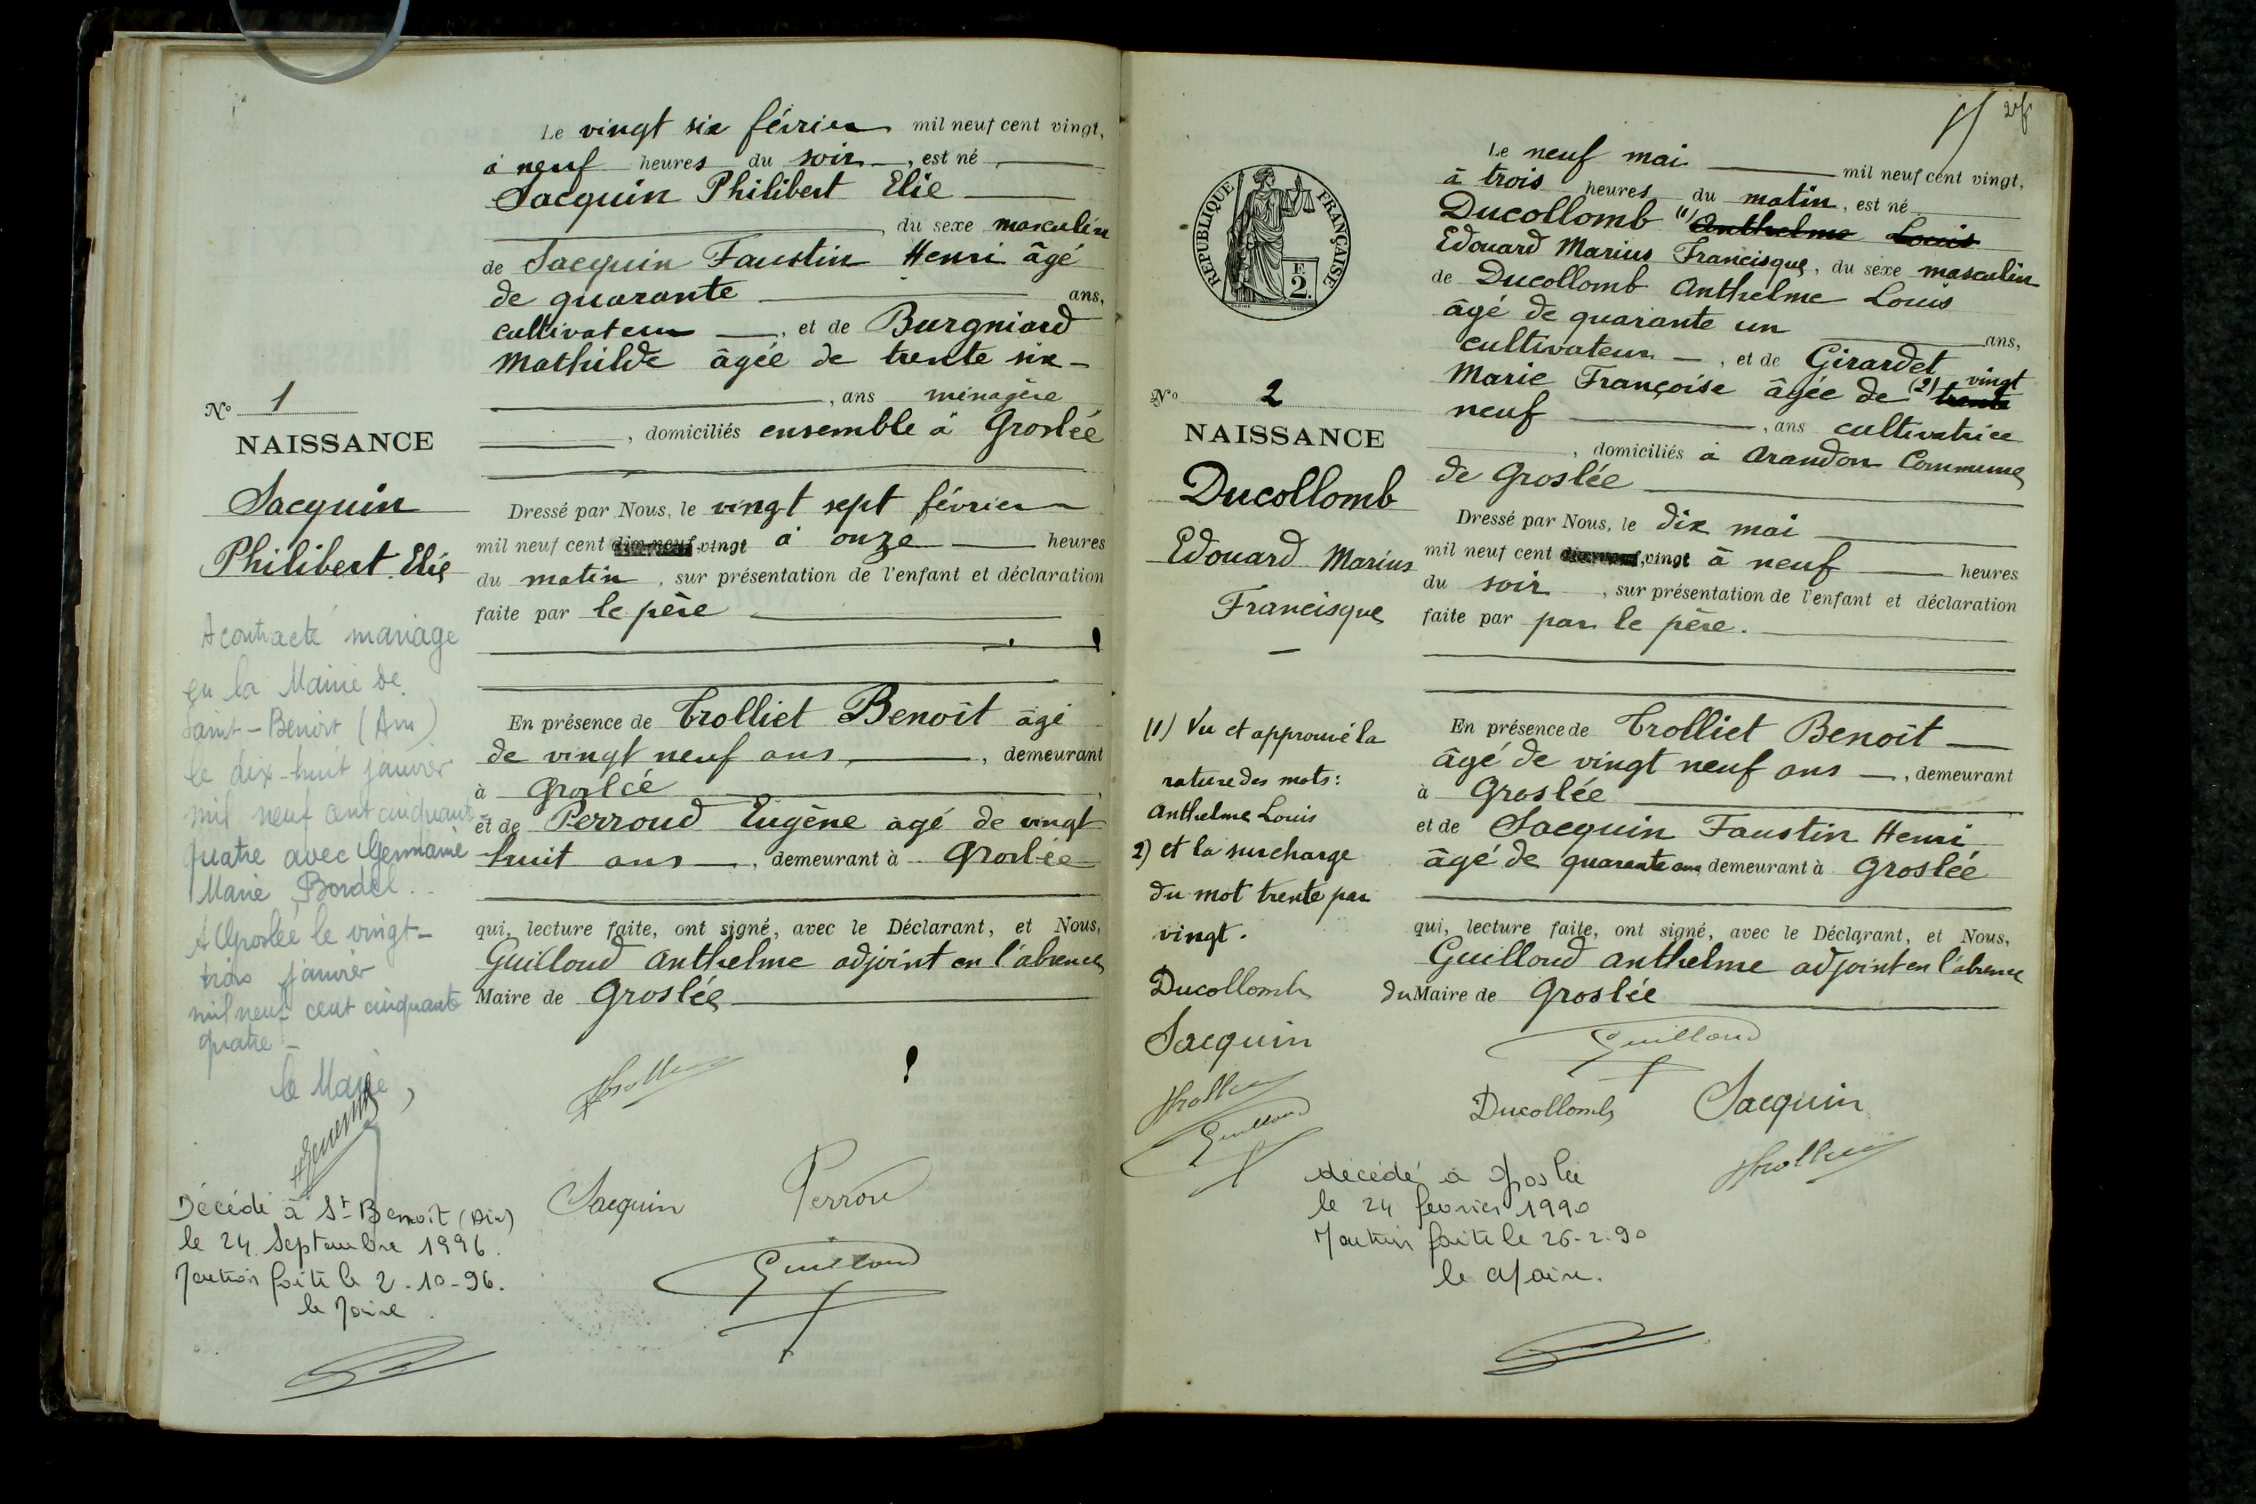 Le vingt six février mil neuf cent vingt,
à neuf heures du soir, est né
Jacquin Philibert Elie
, du sexe masculin
de Jacquin Faustin Henri âgé
de quarante ans,
cultivateur, et de Burgniard
Mathilde âgée de trente six
, ans ménagère
, domiciliés ensemble à Groslée
N° 1
NAISSANCE
Jacquin
Philibert Elie
Dressé par Nous, le vingt sept février
mil neuf cent dix-neuf vingt à onze heures
du matin, sur présentation de l'enfant et déclaration
faite par le père
En présence de Trolliet Benoît âgé
de vingt neuf ans, demeurant
à Groslée,
et de Perroud Eugène agé de vingt
huit ans, demeurant à Groslée
qui, lecture faite, ont signé, avec le Déclarant, et Nous,
Guilloud Anthelme adjoint en l'absence
Maire de Groslée
A contracté mariage
en la Mairie de
Saint-Benoit (Ain)
le dix-huit janvier
mil neuf cent cinquante
quatre avec Germaine
Marie Bordel.
A Groslée le vingt-
trois janvier
mil neuf cent cinquante
quatre -
le Maire,
Trolliet
Jacquin Perroud
Guilloud
Décédé à St Benoît (Ain)
le 24 Septembre 1996.
Mention faite le 2-10-96.
le Maire
Le neuf mai mil neuf cent vingt,
à trois heures du matin, est né
Ducollomb (1) Anthelme Louis
Edouard Marius Francisque, du sexe masculin
de Ducollomb Anthelme Louis
âgé de quarante un ans,
cultivateur, et de Girardet
Marie Françoise âgée de (2) trente vingt
neuf, ans cultivatrice
, domiciliés à Arandon Commune
de Groslée
RÉPUBLIQUE FRANÇAISE
F.
2.
N° 2
NAISSANCE
Ducollomb
Edouard Marius
Francisque
Dressé par Nous, le dix mai
mil neuf cent dix-neuf, vingt à neuf heures
du soir, sur présentation de l'enfant et déclaration
faite par par le père.
En présence de Trolliet Benoît
âgé de vingt neuf ans, demeurant
à Groslée
et de Jacquin Faustin Henri
âgé de quarante ans demeurant à Groslée
qui, lecture faite, ont signé, avec le Déclarant, et Nous,
Guilloud Anthelme adjoint en l'absence
du Maire de Groslée
(1) Vu et approuvé la
rature des mots:
Anthelme Louis
2) et la surcharge
du mot trente par
vingt.
Ducollomb
Jacquin
Trolliet
Guilloud
Guilloud
Ducollomb Jacquin
Trolliet
décédé à Groslée
le 24 février 1990
Mention faite le 26-2-90
le Maire.